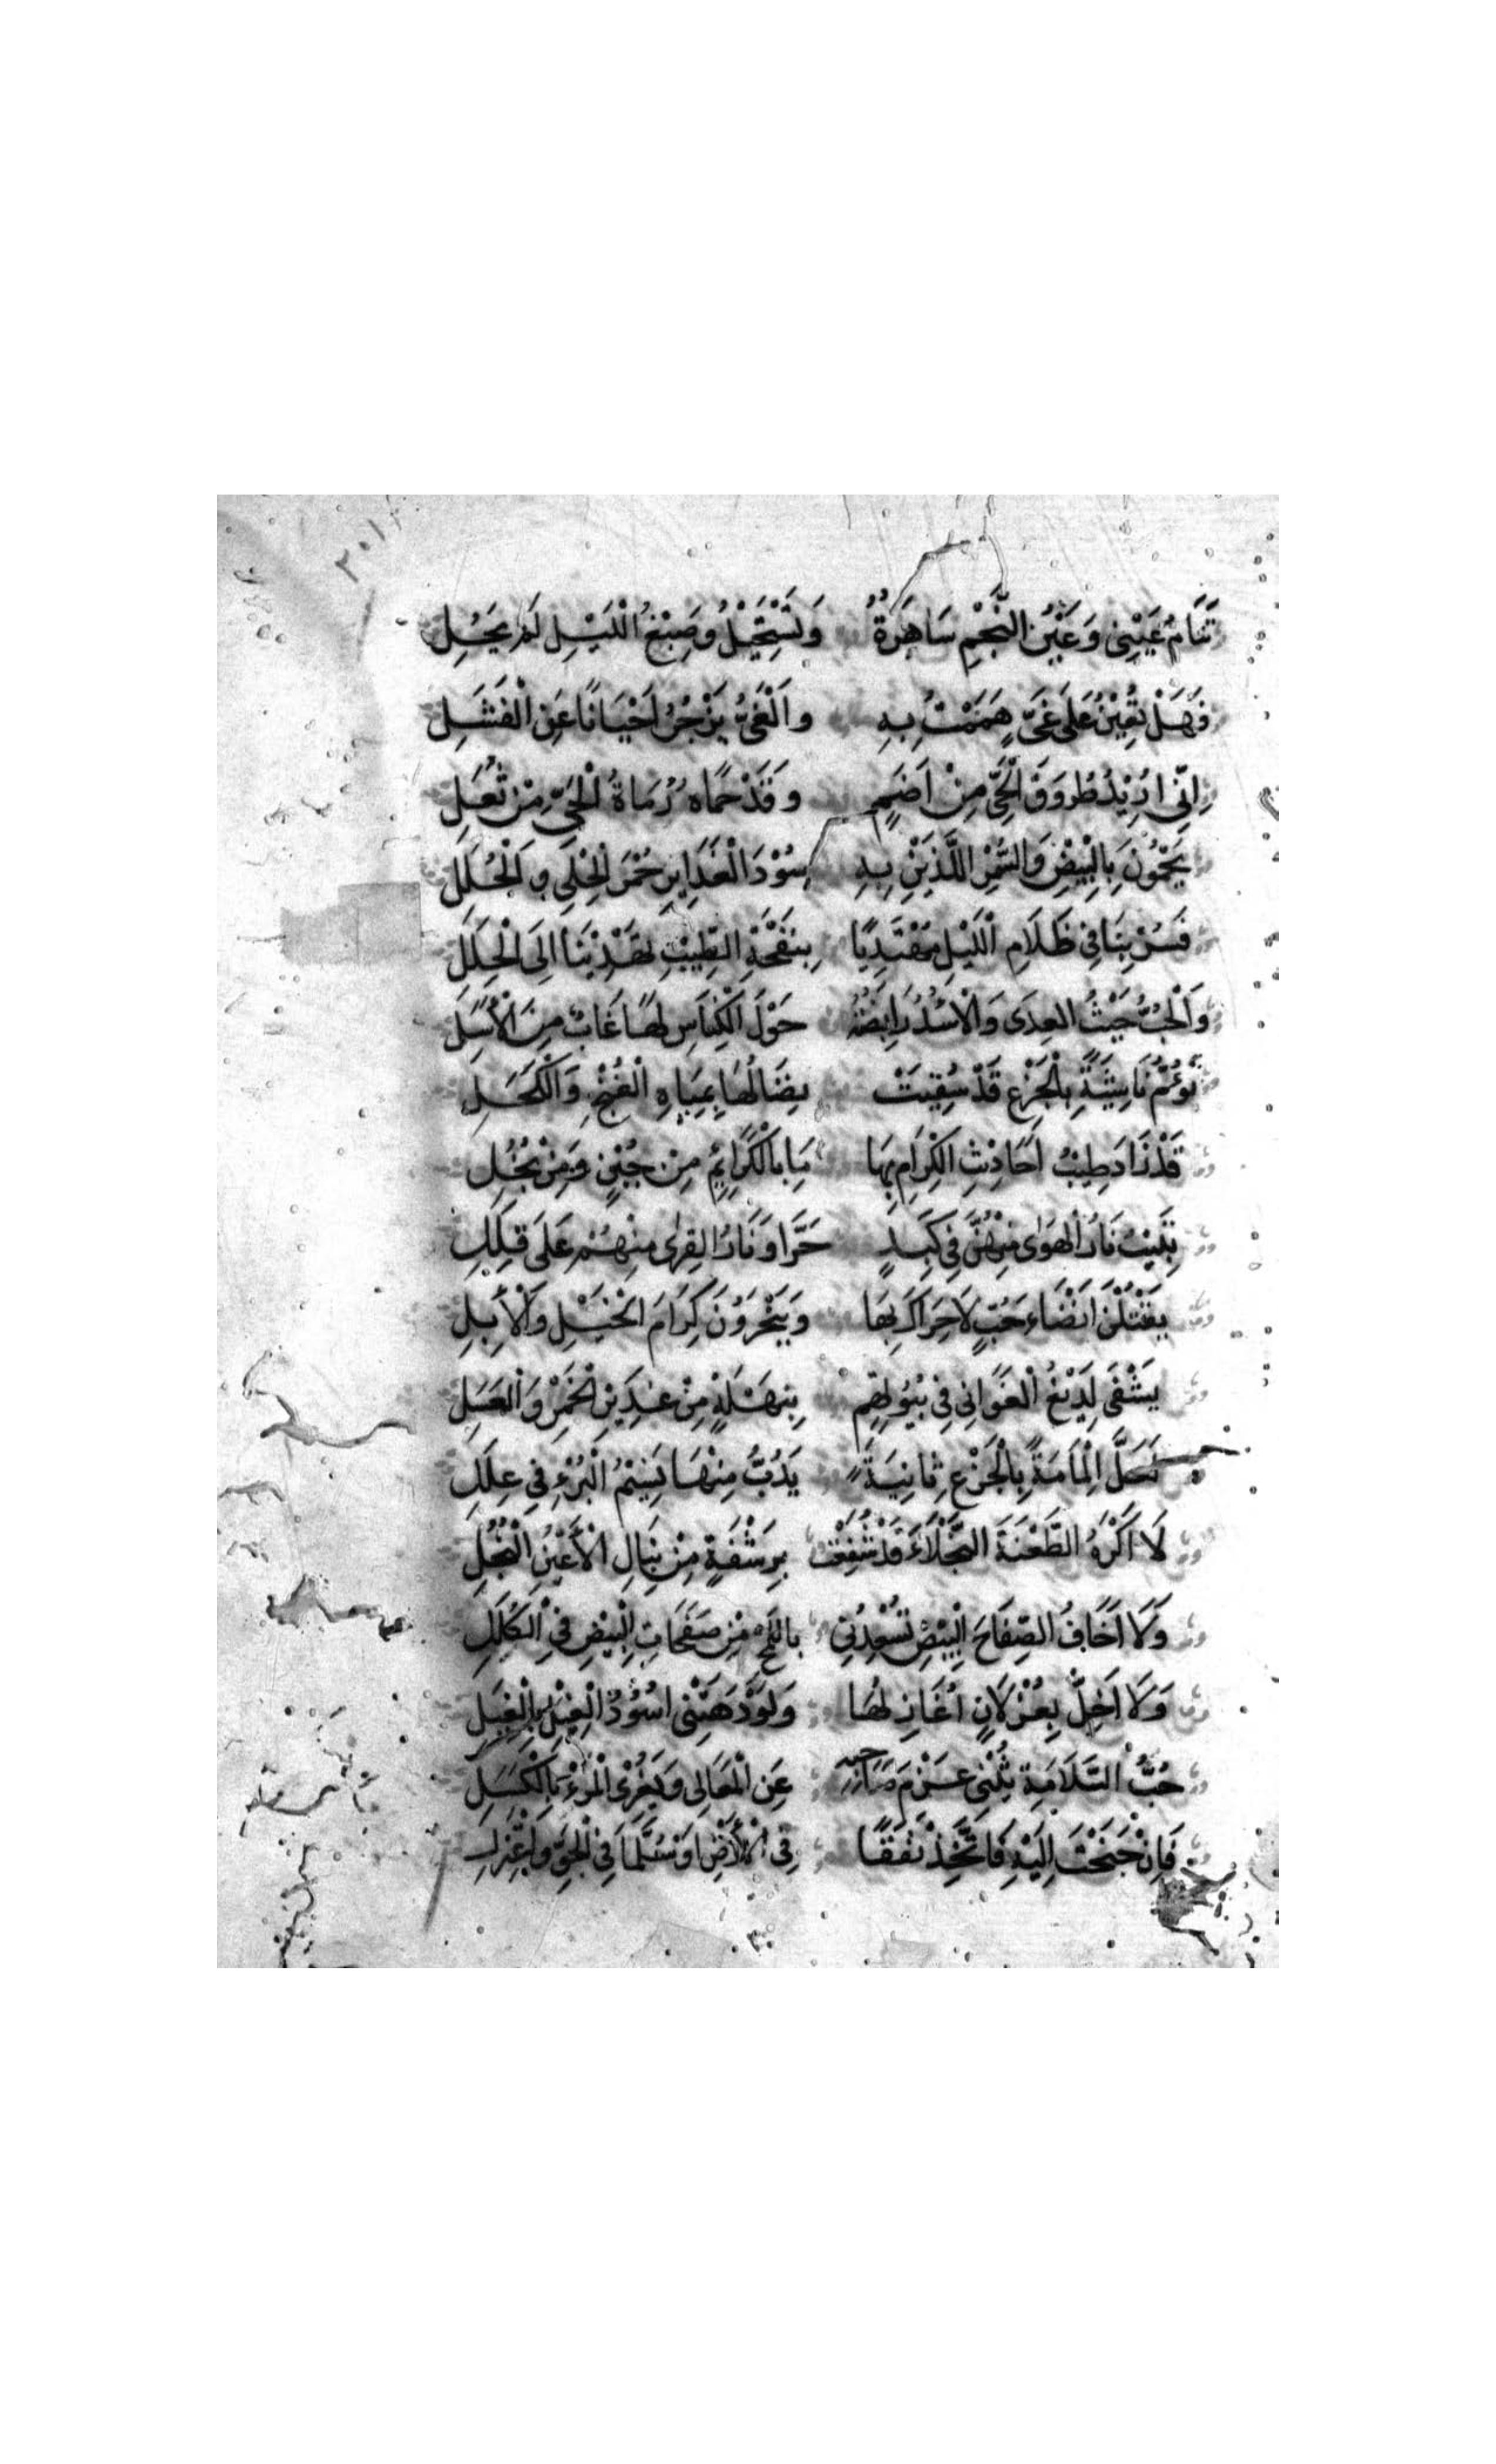 ٢٠١
تَنَامُ عَيْنِى وَعَيْنُ النَّجْمِ سَاهِرَةٌ وَتَسْتَحِيْلُ وَصِبْغُ اللَّيْلِ لَمْ يَحُلِ
فَهَلْ تُعِيْنُ عَلَى غَىٍّ هَمَمْتُ بِهِ وَالْغَىُّ يَزْجُرُ اَحْيَانًا عَنِ الْفَشَلِ
اِنِّى اُرِيْدُ طُرُوْقَ الْحَىِّ مِنْ اَضَمٍ وَقَدْ حَمَاهُ رُمَاةُ الْحَىِّ مِنْ ثُعَلِ
يَحْمُوْنَ بِالْبِيْضِ وَالسُّمْرِ اللَّدَيْنِ بِهِ سُوْدَ الْغَدَايِرِ حُمْرَ الْحَلْىِ وَالْحُلَلِ
فَسِرْ بِنَا فِى ظَلَامِ اللَّيْلِ مُهْتَدِيًا بِنَفْحَةِ الطِّيْبِ تَهْدِيْنَا اِلَى الْحِلَلِ
وَالْحُبُّ حَيْثُ الْعِدَى وَالْاُسْدُ رَابِضَةٌ حَوْلَ الْكِنَاسِ لَهَا غَابٌ مِنَ الْاَسَلِ
نَؤُمُّ نَاشِئَةً بِالْجَزْعِ قَدْ سُقِيَتْ نِصَالُهَا بِمِيَاهِ الْغُنْجِ وَالْكَحَلِ
قَدْ زَادَ طِيْبَ اَحَادِيْثِ الْكِرَامِ بِهَا مَا بِالْكَرَائِمِ مِنْ جُبْنٍ وَمِنْ بُخُلِ
تَبِيْتُ نَارُ الْهَوٰى مِنْهُنَّ فِى كَبِدٍ حَرَّا وَنَارُ الْقِرٰى مِنْهُمْ عَلَى قُلَلِ
يَقْتُلْنَ اَنْضَاءَ حُبٍّ لَا حِرَاكَ بِهَا وَيَنْحَرُوْنَ كِرَامَ الْخَيْلِ وَالْاِبِلِ
يُشْفَى لَدِيْغُ الْغَوَانِى فِى بُيُوْتِهِمِ بِنَهْلَةٍ مِنْ غَدِيْرِ الْخَمْرِ وَالْعَسَلِ
لَعَلَّ اِلْمَامَةً بِالْجَزْعِ ثَانِيَةً يَدُبُّ مِنْهَا نَسِيْمُ الْبُرْءِ فِى عِلَلِ
لَا اَكْرَهُ الطَّعْنَةَ النَّجْلَاءَ قَدْ شُفِعَتْ بِرَشْقَةٍ مِنْ نِبَالِ الْاَعْيُنِ النُّجُلِ
وَلَا اَخَافُ الصِّفَاحَ الْبِيْضَ تُسْعِدُنِى بِاللَّمْحِ مِنْ صَفَحَاتِ الْبِيْضِ فِى الْكِلَلِ
وَلَا اُخِلُّ بِغُزْلَانٍ اُغَازِلُهَا وَلَوْ دَهَتْنِى اُسُوْدُ الْغِيْلِ بِالْغِيَلِ
حُبُّ السَّلَامَةِ يُثْنِى عَزْمَ صَاحِبِهِ عَنِ الْمَعَالِى وَيُغْرِى الْمَرْءَ بِالْكَسَلِ
فَاِنْ جَنَحْتَ اِلَيْهِ فَاتَّخِذْ نَفَقًا فِى الْاَرْضِ اَوْ سُلَّمًا فِى الْجَوِّ فَاعْتَزِلِ